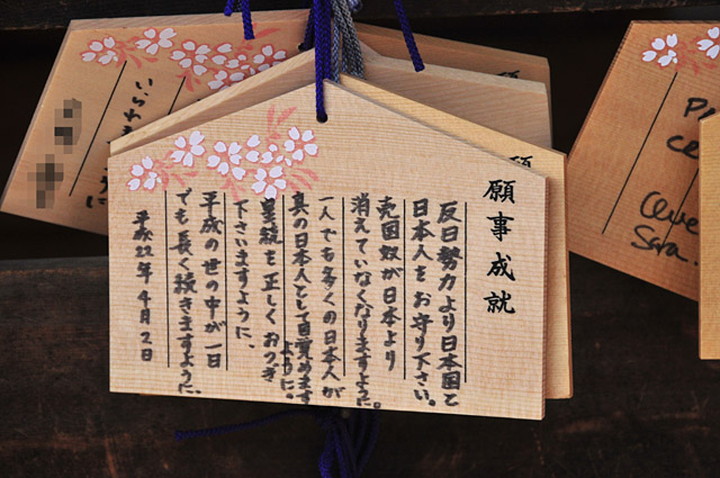 願事成就
反日勢力より日本国と
日本人をお守り下さい。
売国奴が日本より
消えていなくなりますように。
一人でも多くの日本人が
真の日本人として目覚めます
ように。
皇統を正しくおつぎ
下さいますように、
平成の世の中が一日
でも長く続きますように、
平成22年4月2日
願
願
Sara.